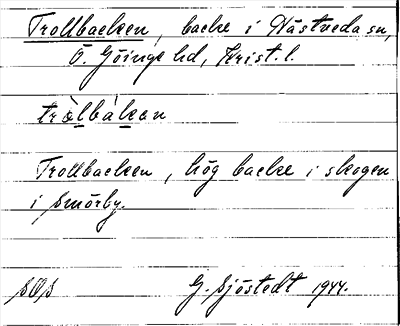 Trollbacken, backe i Hästveda sn,
Ö. Göinge hd, Krist. l.
tròlbákan
Trollbacken, hög backe i skogen
i Smörby.
SOS G. Sjöstedt 1944.